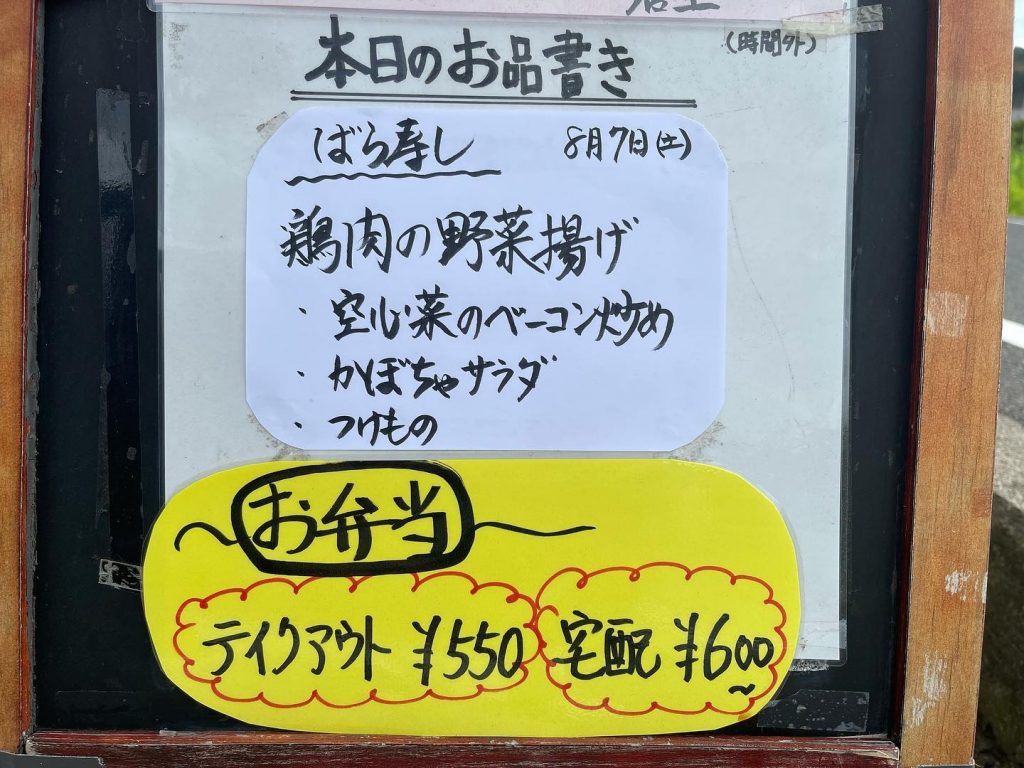 (時間外)
本日のお品書き
ばら寿し 8月7日(土)
鶏肉の野菜揚げ
・空心菜のベーコン炒め
・かぼちゃサラダ
・つけもの
お弁当
テイクアウト ¥550
宅配 ¥600~